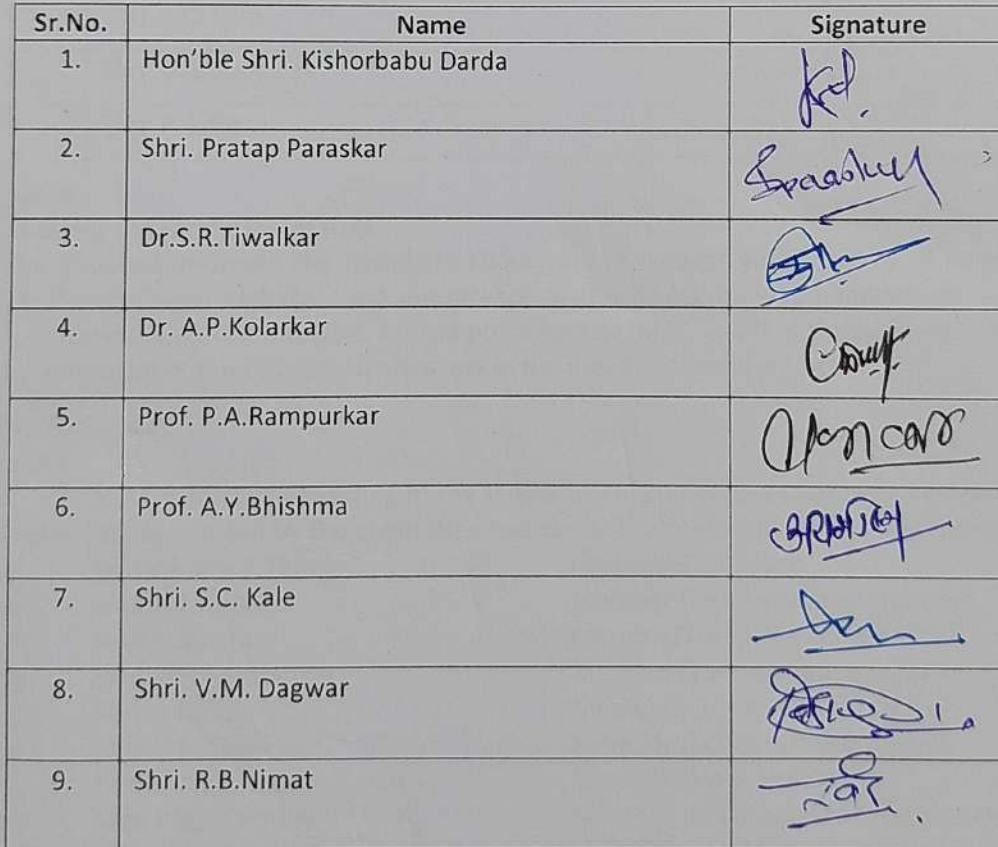 Sr.No. Name Signature
1. Hon'ble Shri. Kishorbabu Darda
2. Shri. Pratap Paraskar
3. Dr.S.R.Tiwalkar
4. Dr. A.P.Kolarkar
5. Prof. P.A.Rampurkar
6. Prof. A.Y.Bhishma
7. Shri. S.C. Kale
8. Shri. V.M. Dagwar
9. Shri. R.B.Nimat